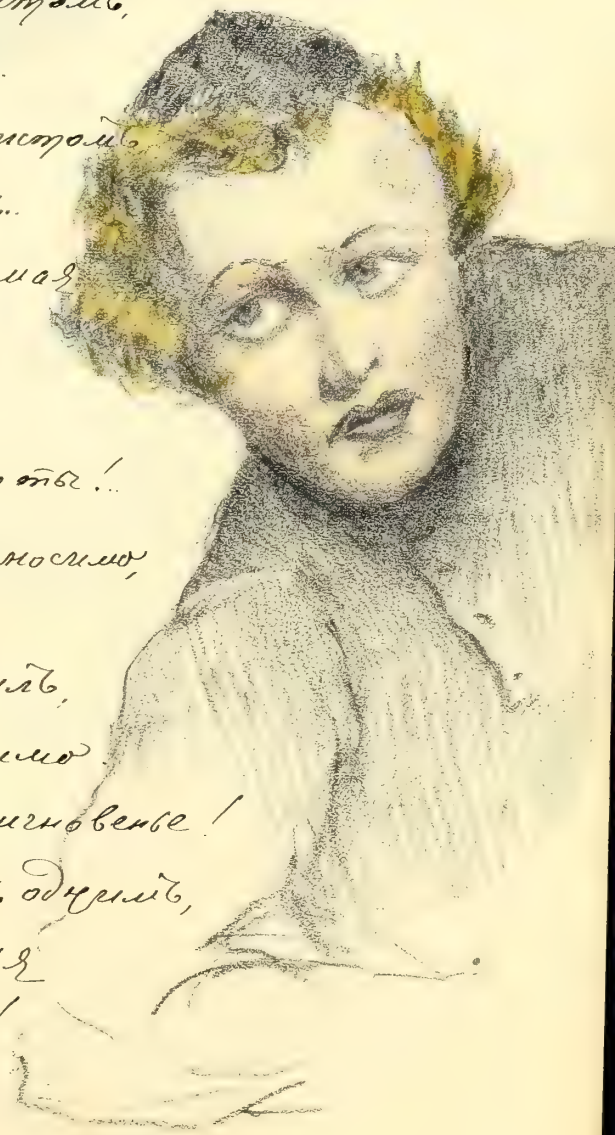 стомъ,
.
истомъ
ь...
мая
ты!..
носимо,
илъ,
имо.
игновенье!
однимъ,
я
!